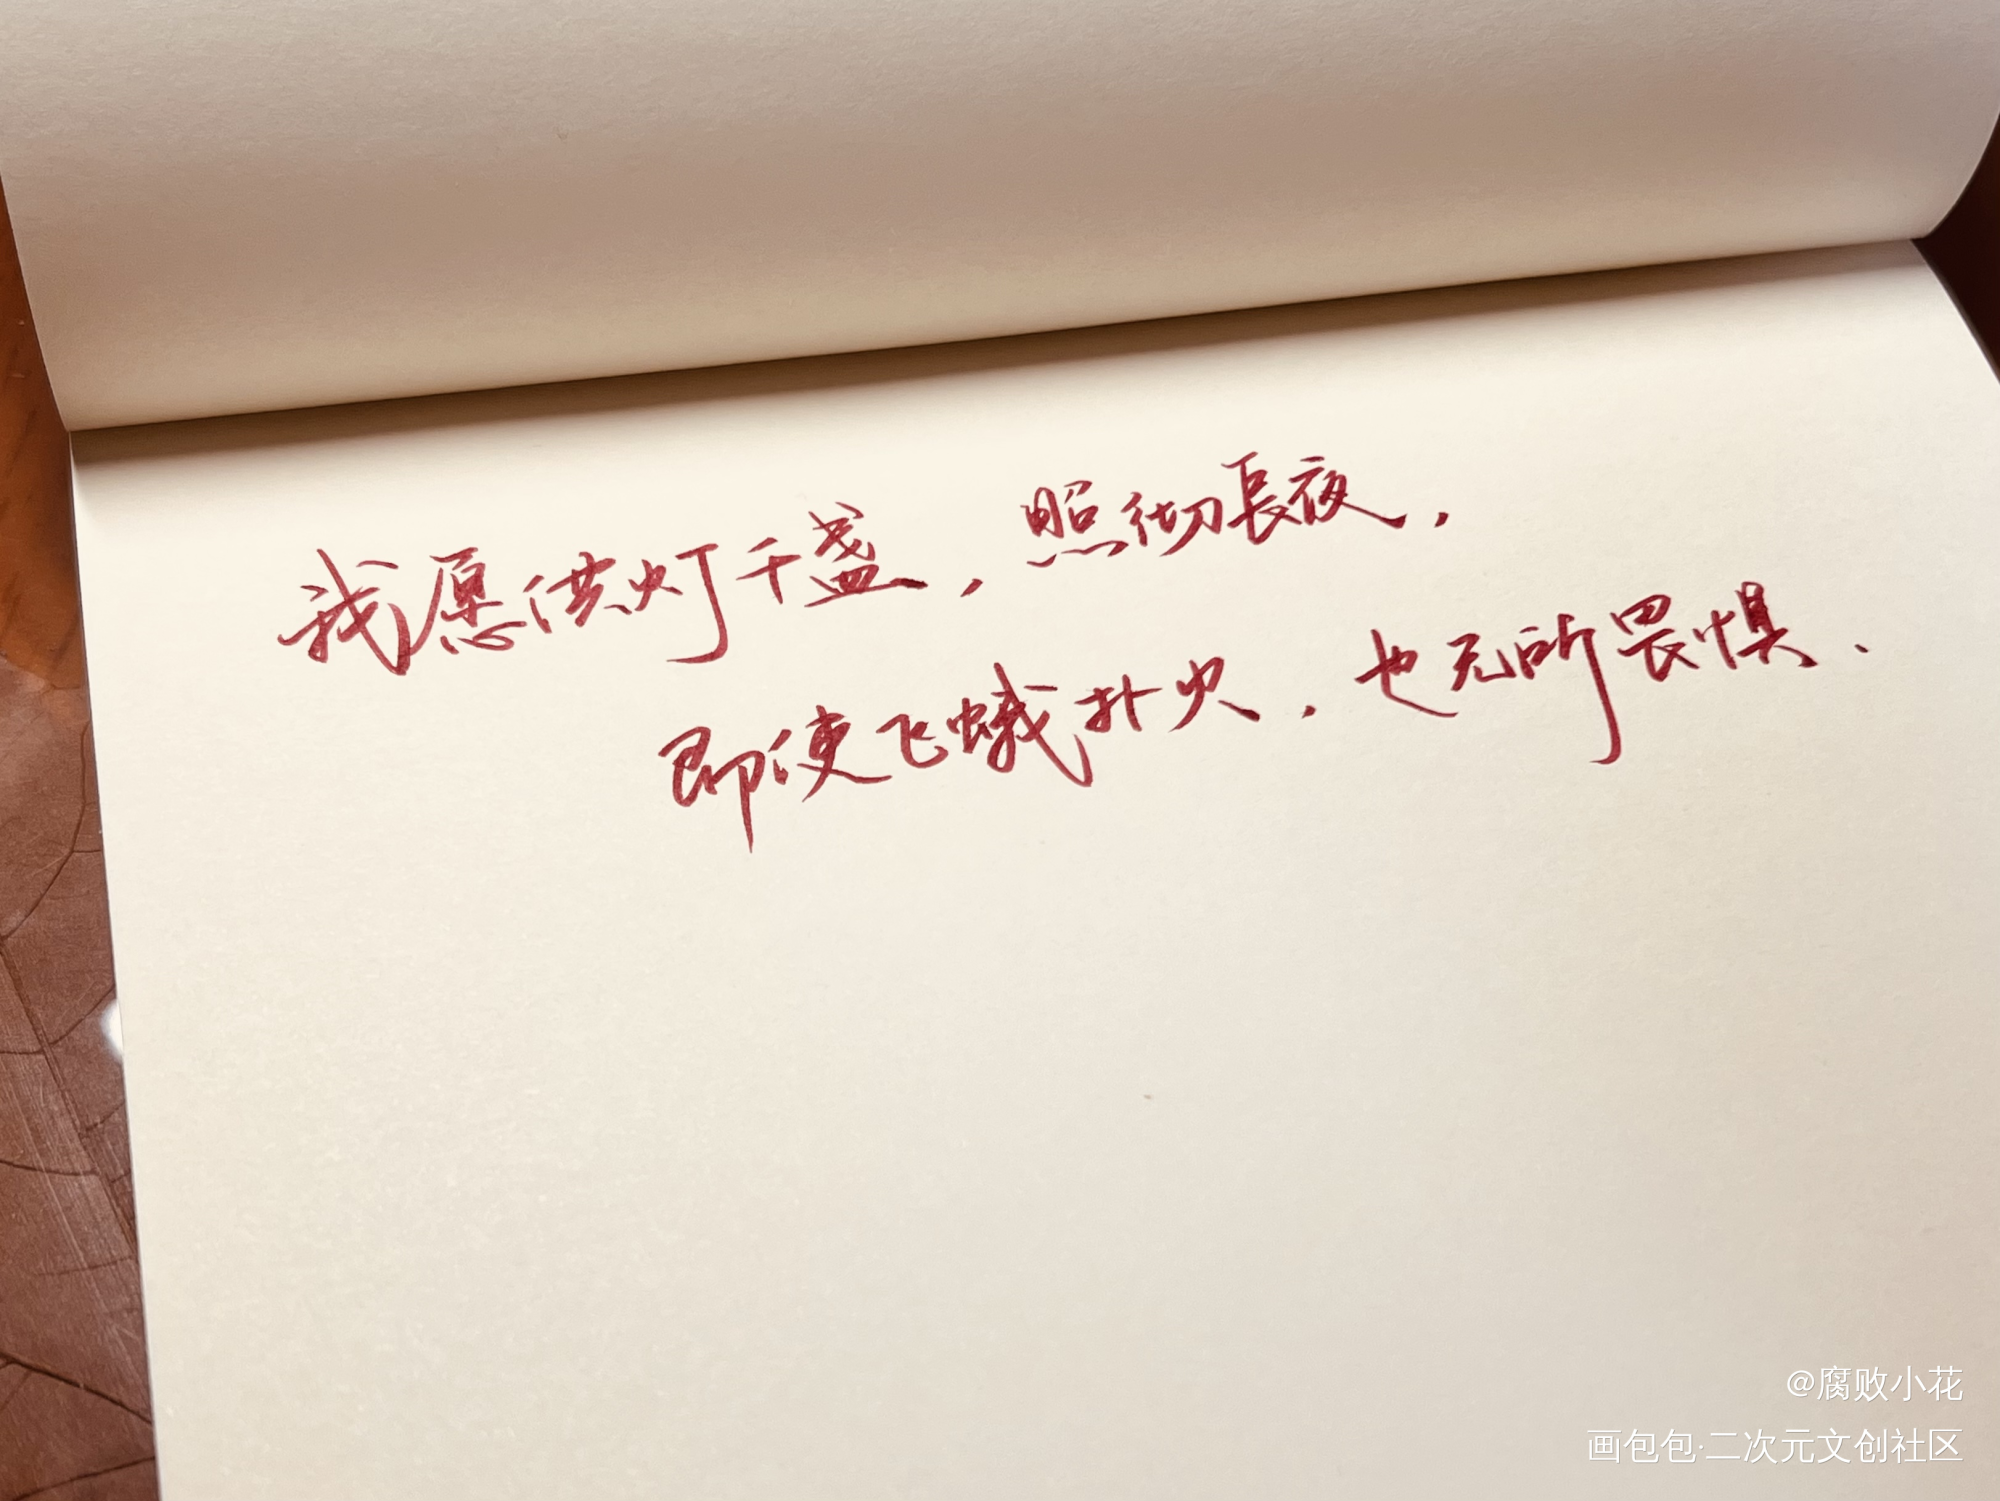 我愿供灯千盏，照彻長夜，
即使飞蛾扑火，也无所畏惧．
@腐败小花
画包包·二次元文创社区